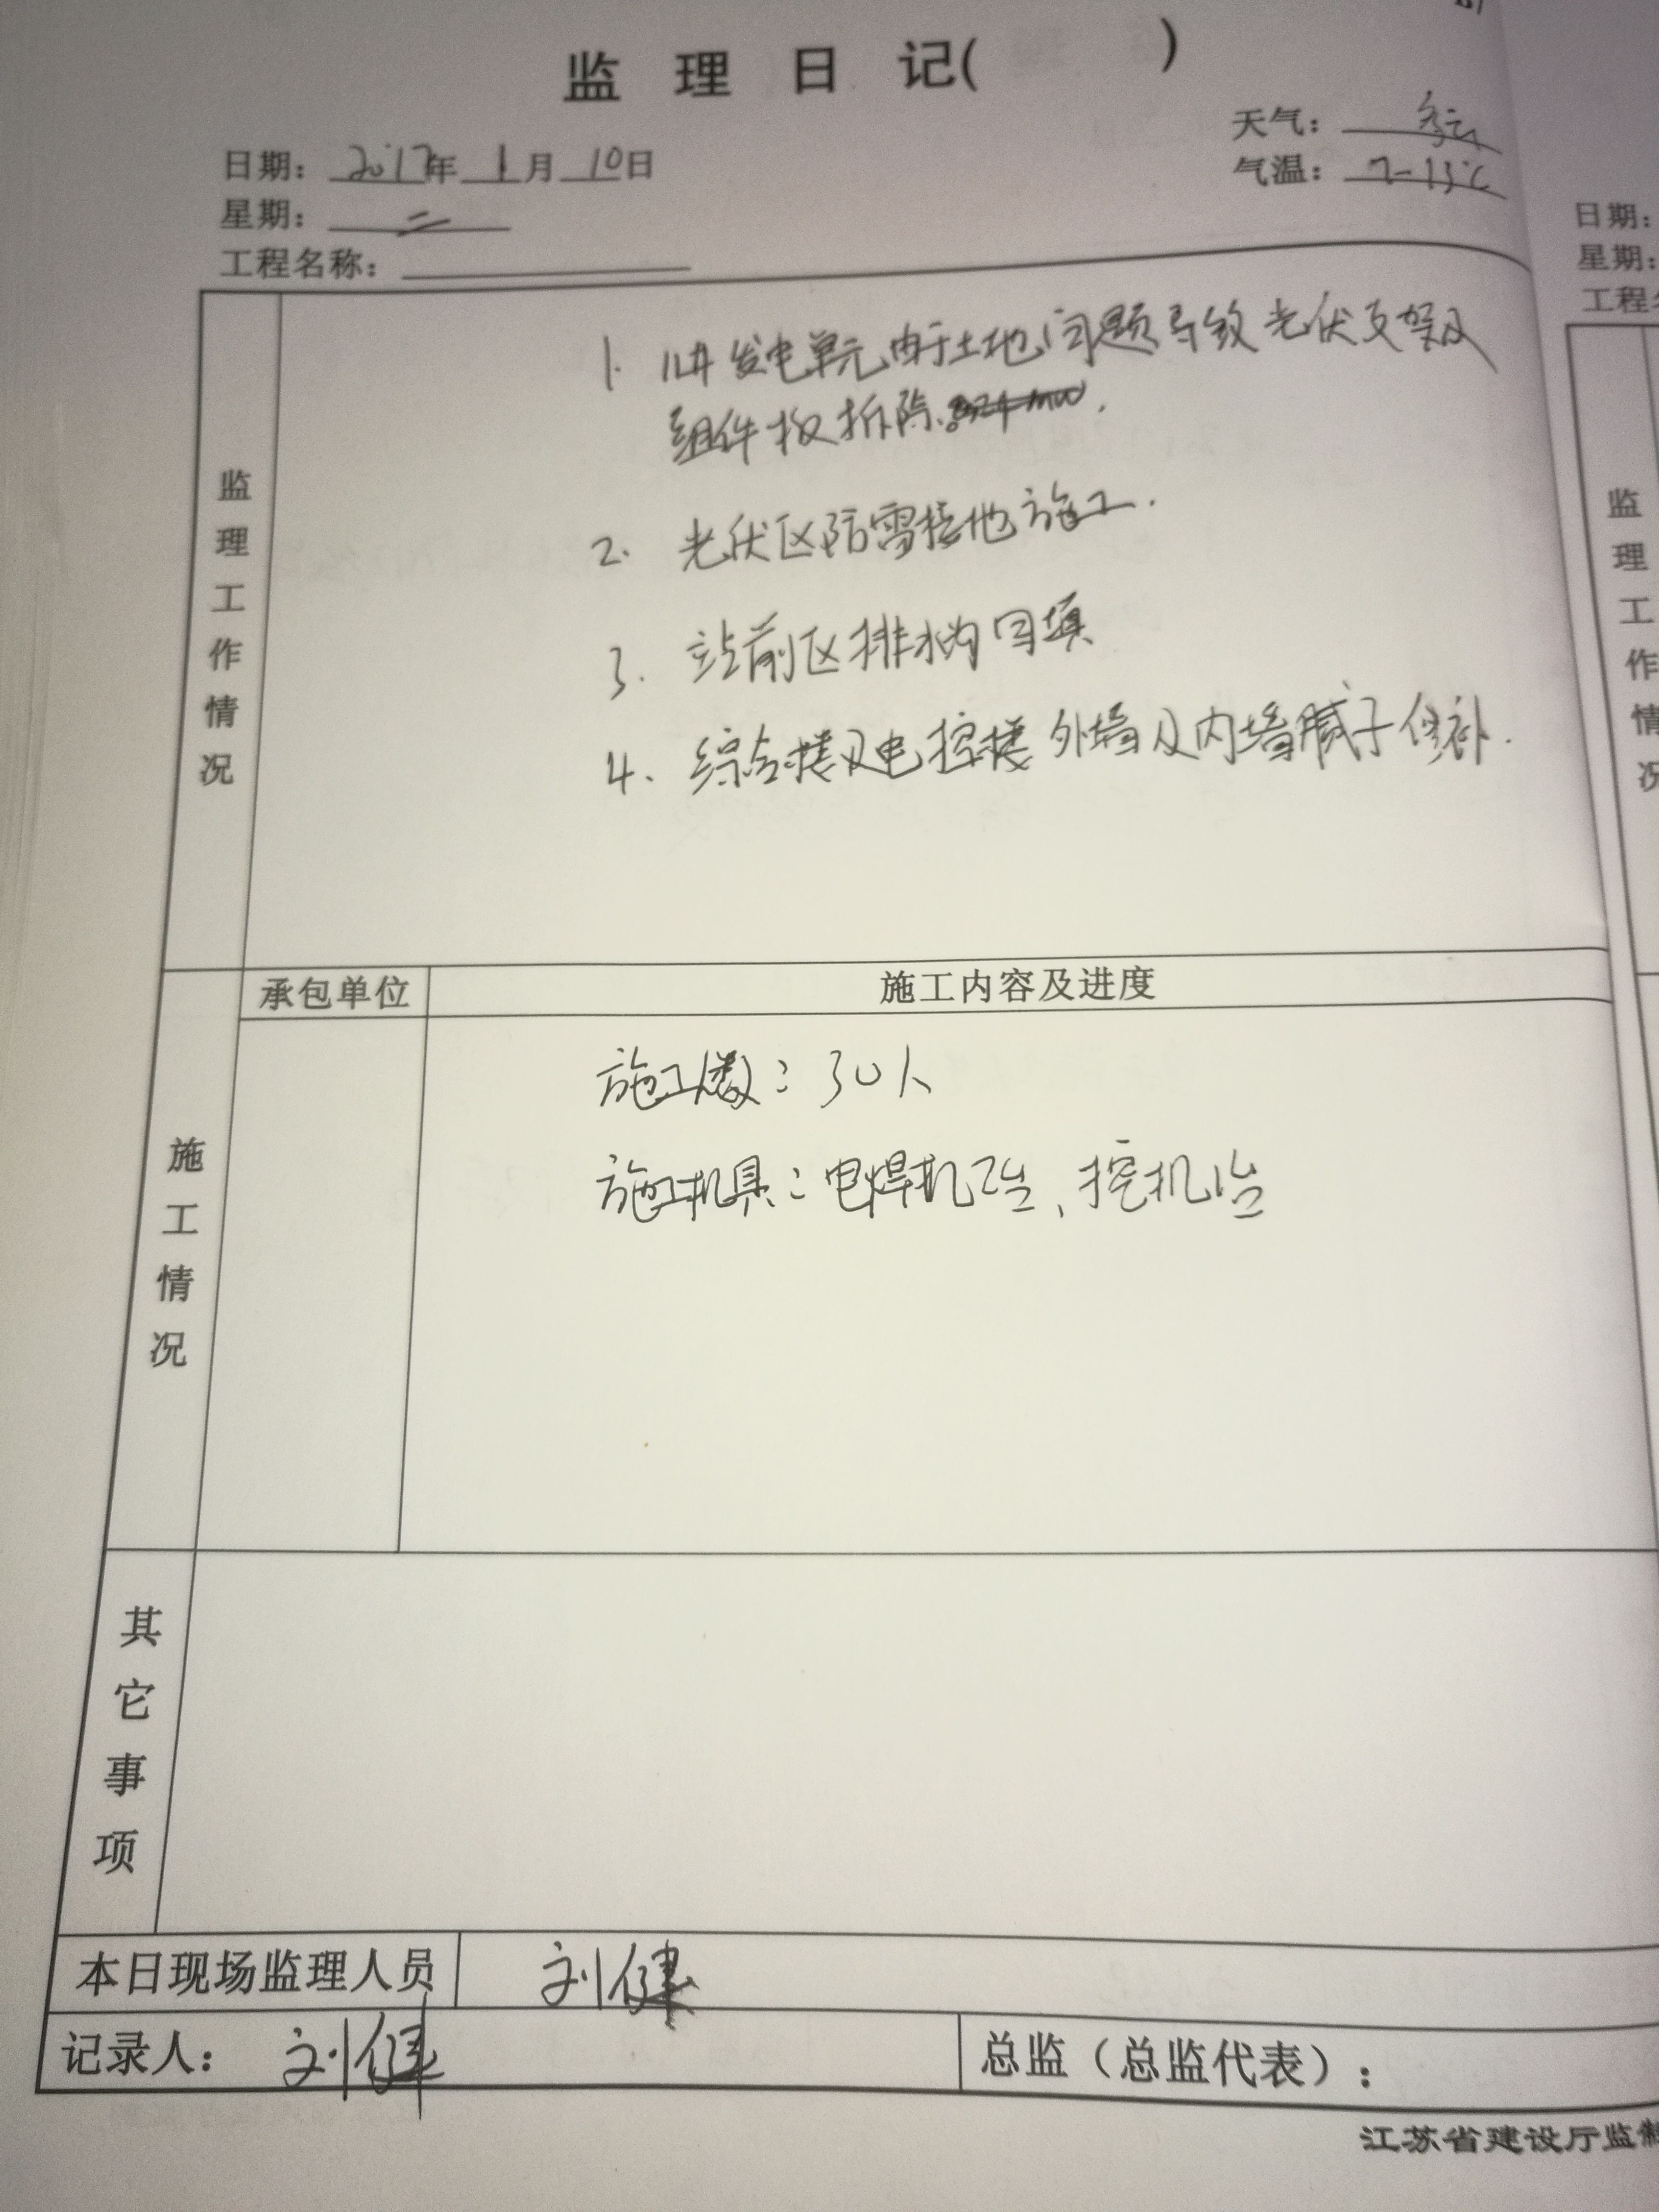 监 理 日 记(      )
天气：多云
日期：2017年 1 月 10日
气温：7-13℃
星期：二
工程名称：
监理工作情况
1. 11#发电单元由于土地问题导致光伏支架及
组件板拆除.
2. 光伏区防雷接地施工.
3. 站前区排水沟回填
4. 综合楼及电控楼外墙及内墙腻子修补.
承包单位
施工内容及进度
施工情况
施工人数：30人
施工机具：电焊机2台、挖机1台
其它事项
本日现场监理人员 刘健
记录人：刘健
总监（总监代表）：
江苏省建设厅监制
日期：
星期：
工程名
监理工作情况